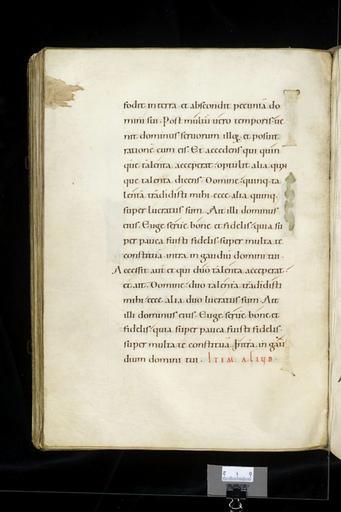 fodit in terra et abscondit pecuniā do
mini sui. Post multū uero temporis ue
nit dominus seruorum illoꝝ. et posuit
rationē cum eis. Et accedens qui quin
que talenta acceperat. optulit alia quin
que talenta dicens. Domine. quinq; ta
lenta tradidisti mihi. ecce alia quinq;
super lucratus sum. Ait illi dominus
eius. Euge serue bone et fidelis. quia su
per pauca fuisti fidelis. super multa te
constituā. intra in gaudiū domini tui.
Accessit aut̄ et qui duo talenta acceperat.
et ait. Domine. duo talenta tradidisti
mihi. ecce alia duo lucratus sum. Ait
illi dominus eius. Euge serue bone. et
fidelis. quia super pauca fuisti fidelis.
super multa te constituā. Intra in gau
dium domini tui. ITEM